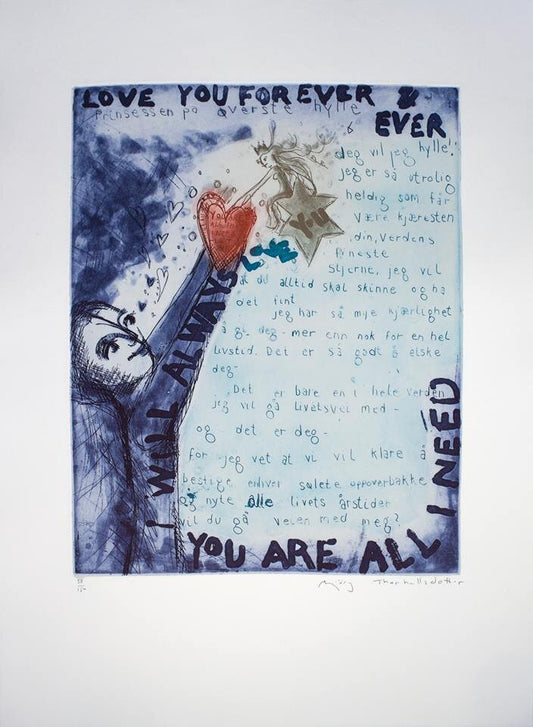 LOVE YOU FOREVER &
EVER
Prinsessen på øverste hylle
deg vil jeg hylle!
jeg er så utrolig
heldig som får
være kjæresten
din, verdens
fineste
stjerne, jeg vil
at du alltid skal skinne og ha
det fint
jeg har så mye kjærlighet
å gi deg - mer enn nok for en hel
livstid. Det er så godt å elske
deg -
Det er bare en i hele verden
jeg vil gå livetsvei med -
og det er deg -
for jeg vet at vi vil klare å
bestige enhver sølete oppoverbakke
og nyte alle livets årstider
vil du gå veien med meg?
YOU
LOVE
I WILL ALWAYS
YOU ARE ALL I NEED
Thorhallsdottir